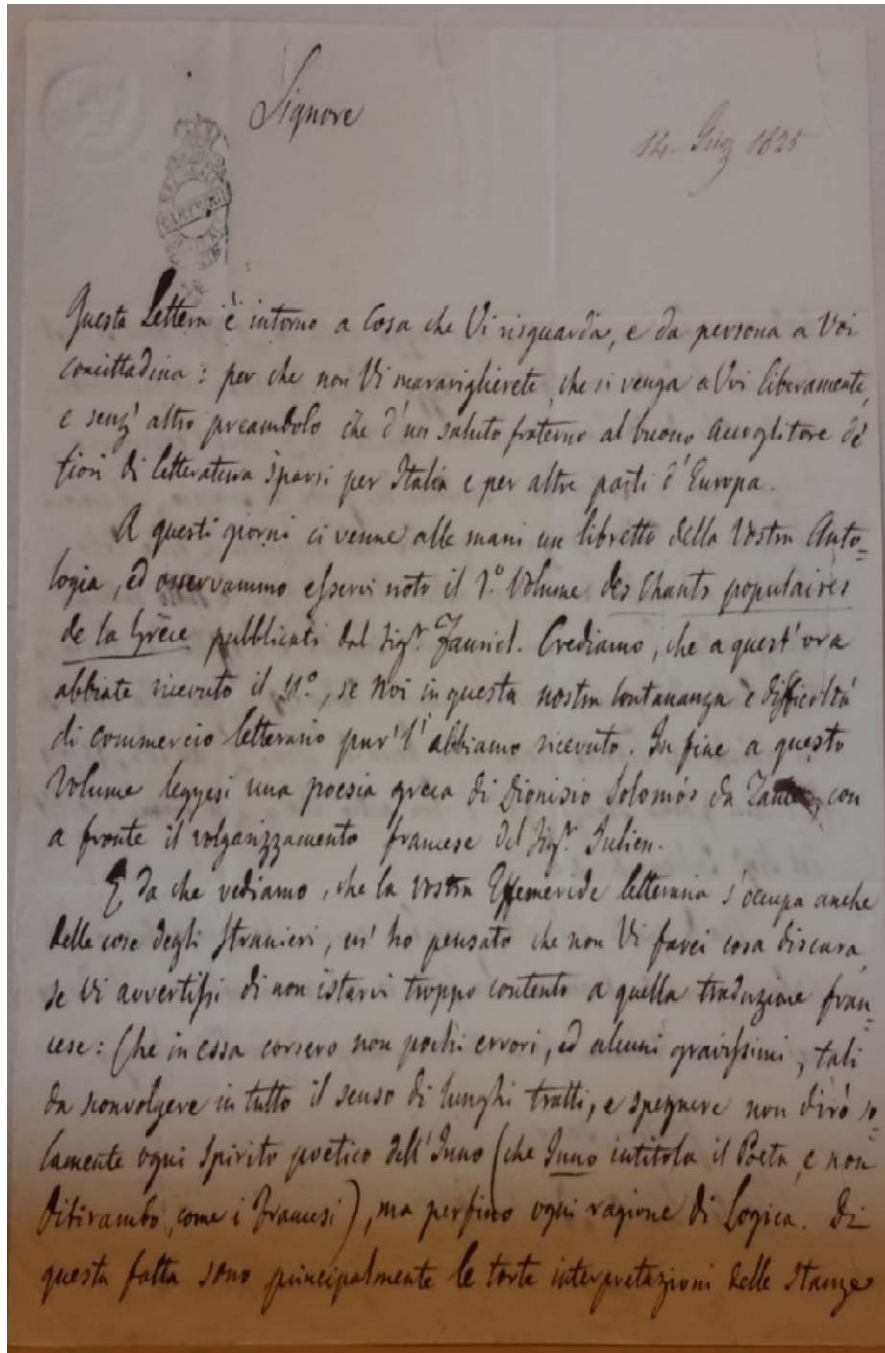 Signore
14. Giug 1825
CARTEGGI
Questa Lettera è intorno a Cosa che Vi risguarda, e da persona a Voi
concittadina: per che non Vi maraviglierete, che si venga a Voi liberamente,
e senz' altro preambolo che d'un saluto fraterno al buono Accoglitore de'
fiori di letteratura sparsi per Italia e per altre parti d'Europa.
A questi giorni ci venne alle mani un libretto della Vostra Anto=
logia, ed osservammo esservi noto il 1.º Volume des Chants populaires
de la Grèce pubblicati dal Sigr. Fauriel. Crediamo, che a quest'ora
abbiate ricevuto il IIº, se Noi in questa nostra lontananza e difficoltà
di commercio letterario pur l'abbiamo ricevuto. In fine a questo
Volume leggesi una poesia greca di Dionisio Solomós da Zante, con
a fronte il volgarizzamento francese del Sigr. Julien.
E da che vediamo, che la vostra Effemeride letteraria s'occupa anche
delle cose degli Stranieri, m' ho pensato che non Vi farei cosa discara,
se Vi avvertissi di non istarvi troppo contento a quella traduzione fran=
cese: Che in essa corsero non pochi errori, ed alcuni gravissimi, tali
da sconvolgere in tutto il senso di lunghi tratti, e spegnere non dirò so=
lamente ogni spirito poetico dell'Inno (che Inno intitola il Poeta, e non
Ditirambo, come i Francesi), ma perfino ogni ragione di Logica. Di
questa fatta sono principalmente le torte interpretazioni delle Stanze